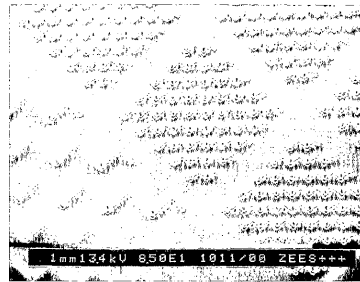 1mm13.4kV 8.50E1 1011/00 ZEES+++